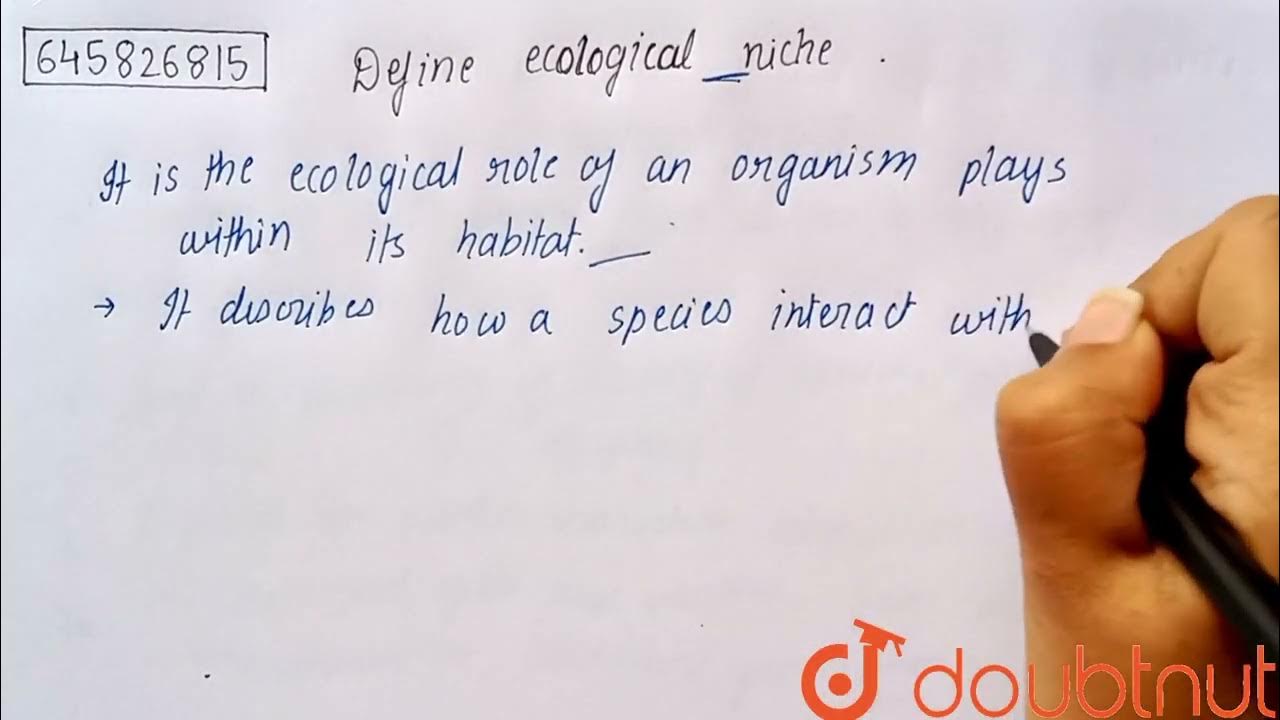 645826815
Define ecological niche .
It is the ecological role of an organism plays
within its habitat.
→ It describes how a species interact with
doubtnut